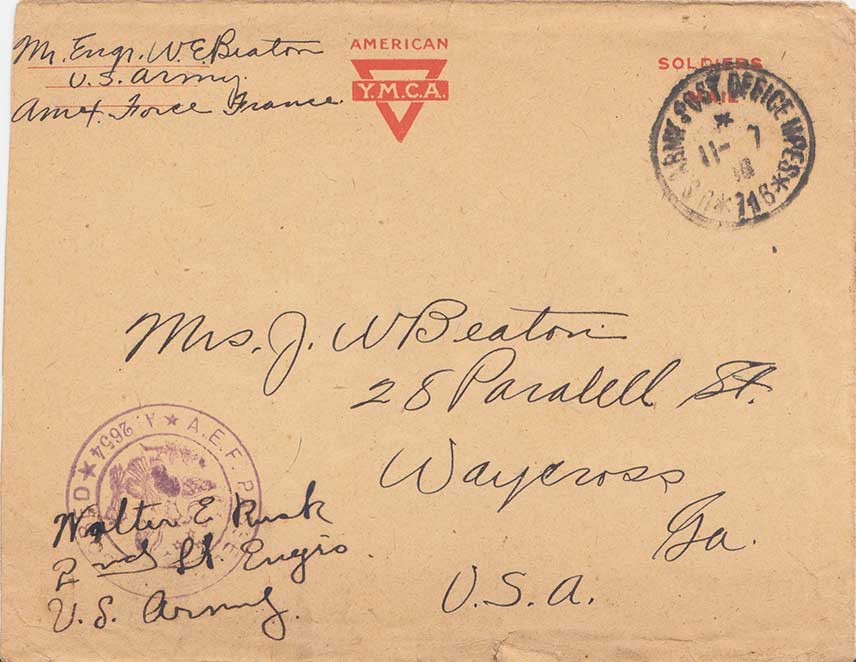 Mr. Engr. W. E. Beaton
U.S. Army.
Amex. Force France.
AMERICAN
Y.M.C.A.
SOLDIERS
U.S. ARMY POST OFFICE MPES * 716 *
11-7
18
Mrs. J. W Beaton
28 Paralell St.
Waycross
Ga.
U.S.A.
A.E.F. P
A. 2654
Walter E Rusk
2nd Lt. Engrs
U.S. Army.